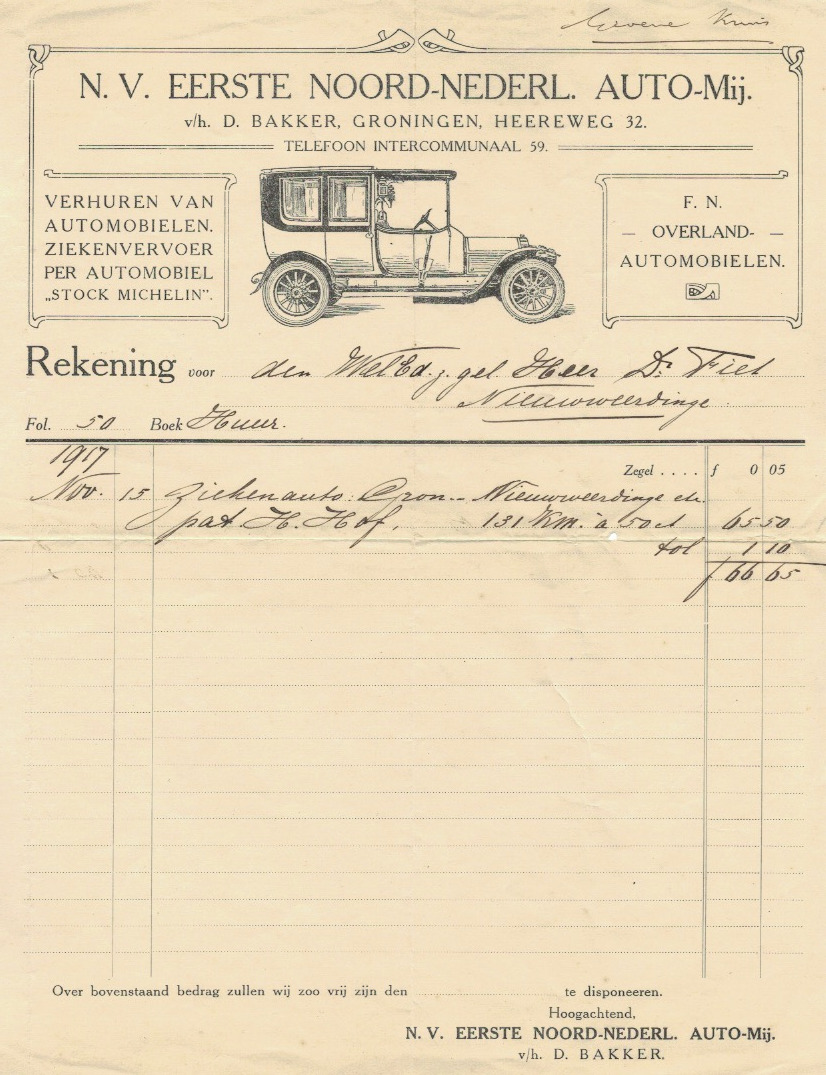 Groene Kruis
N. V. EERSTE NOORD-NEDERL. AUTO-Mij.
v/h. D. BAKKER, GRONINGEN, HEEREWEG 32.
TELEFOON INTERCOMMUNAAL 59.
VERHUREN VAN
AUTOMOBIELEN.
ZIEKENVERVOER
PER AUTOMOBIEL
„STOCK MICHELIN”.
F. N.
— OVERLAND- —
AUTOMOBIELEN.
Rekening voor den WelEd. z. gel. Heer Dr. Fiet
Nieuwweerdinge
Fol. 50 Boek Huur.
1917
Zegel . . . . f 0 05
Nov. 15 Ziekenauto: Gron. – Nieuwweerdinge etc.
pat. H. Hof. 131 KM. à 50 ct 65 50
tol 1 10
f 66 65
Over bovenstaand bedrag zullen wij zoo vrij zijn den te disponeeren.
Hoogachtend,
N. V. EERSTE NOORD-NEDERL. AUTO-Mij.
v/h. D. BAKKER.